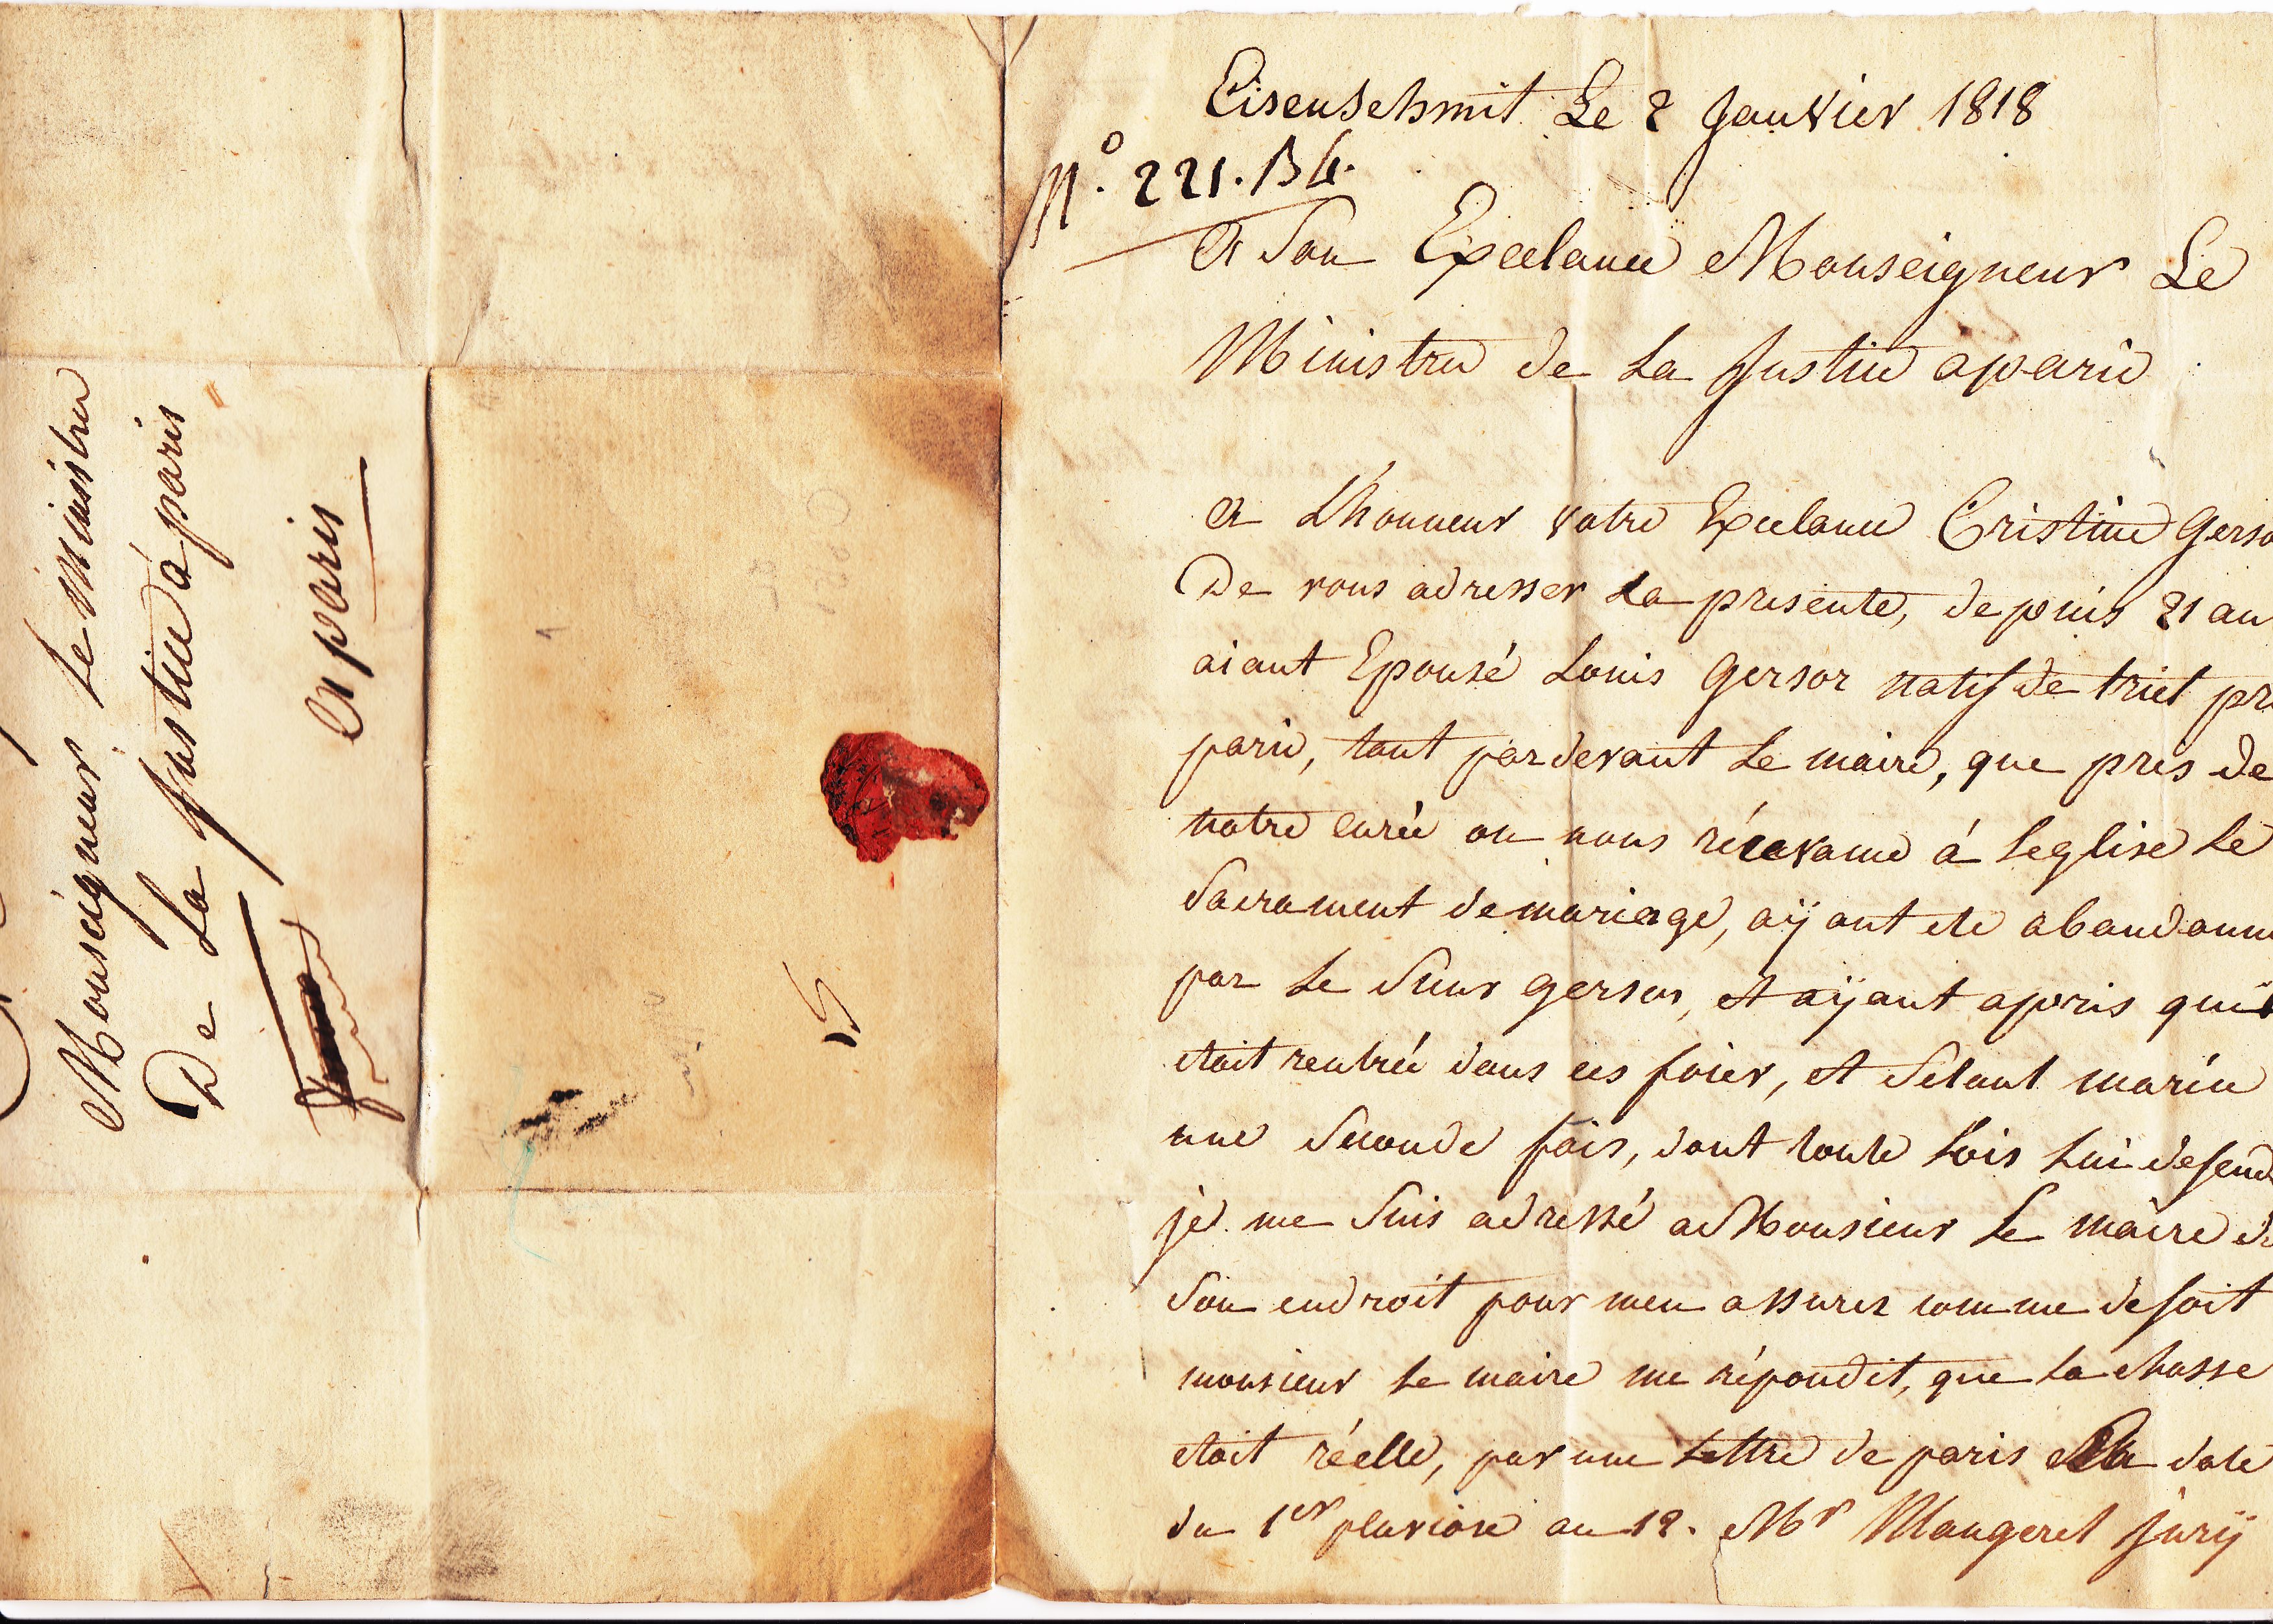 Monseigneur Le Ministre
De La Justice á paris
A paris
15
Eisenschmit Le 2 Janvier 1818
N.° 221. B4.
A Son Excelance Monseigneur Le
Ministre de La Justice a paris
A L'honneur votre Excelance Cristine Gerso
De vous adresser La presente, depuis 21 an
aiant Epousé Louis Gersor natif de triel pr
paris, tant par devant Le maire, que pres de
notre curée ou nous récevame á Leglise Le
Sacrament de mariage, aÿant ete abandonn
par Le Sieur gersor, et aÿant apris quil
etait rentrée dans ces foier, et Setant mariée
une Seconde fois, dont toute Lois Lui defend
je me Suis adressé a Monsieur Le maire de
Son endroit pour men assurer comme de foit
monsieur Le maire me répondit, que La chosse
etoit réelle, par une Lettre de paris date
du 1er pluviose an 12. Mr Maugeret Jurÿ